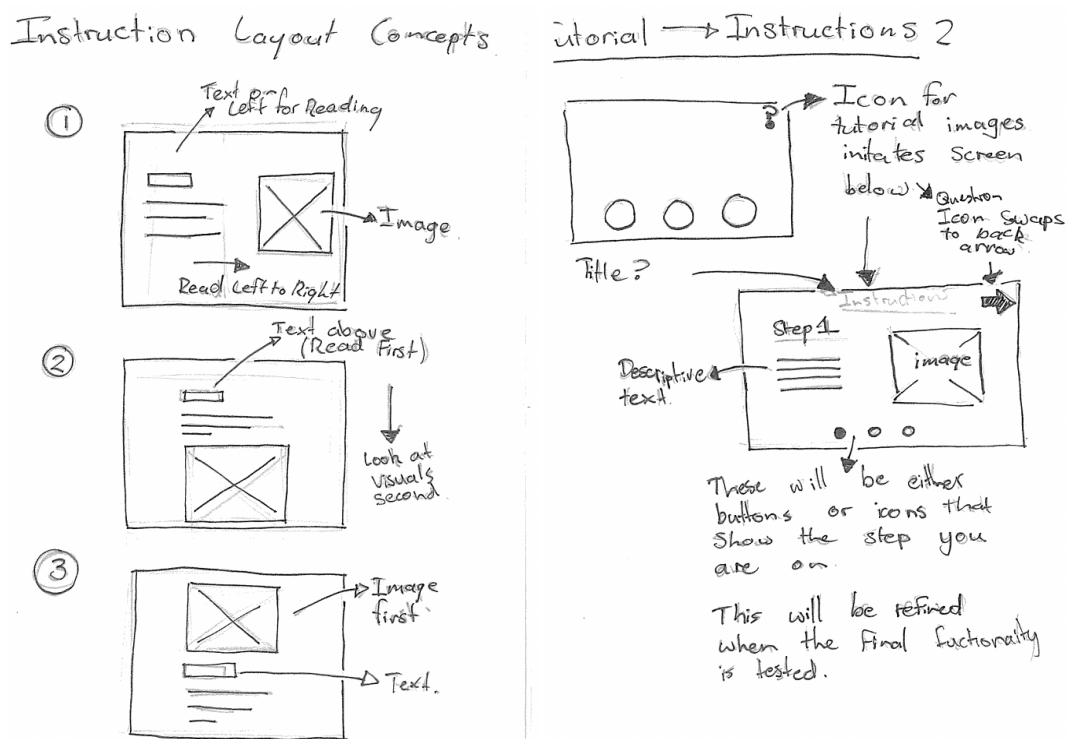 Instruction Layout Concepts
1
Text on
Left for Reading
Image
Read Left to Right
2
Text above
(Read First)
Look at
visuals
second.
3
Image
first
Text.
utorial → Instructions 2
?
Icon for
tutorial images
initates screen
below
Question
Icon Swaps
to back
arrow
Title?
Instructions
Step 1
image
Descriptive
text.
These will be either
buttons or icons that
show the step you
are on.
This will be refined
when the final fuctionaity
is tested.